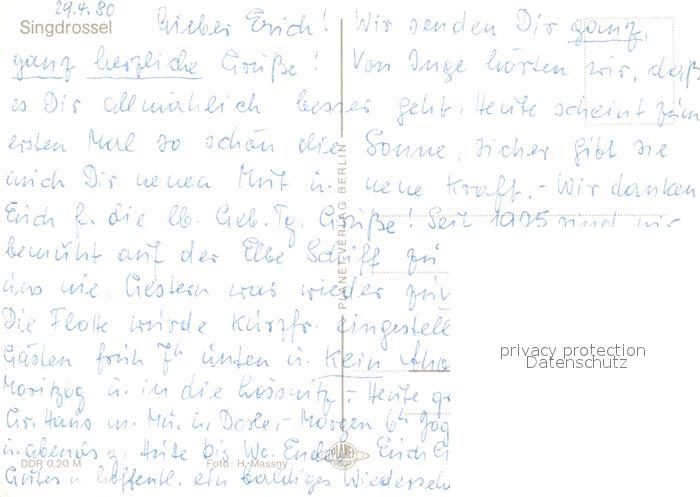 29.4.80
Singdrossel
Lieber Erich! Wir senden Dir ganz,
ganz herzliche Grüße! Von Inge hörten wir, daß
es Dir allmählich besser geht. Heute scheint zum
ersten Mal so schön die Sonne, sicher gibt sie
auch Dir neuen Mut u. neue Kraft.- Wir danken
Euch f. die lb. Geb. Tg. Grüße! Seit 1975 sind wir
bemüht auf der Elbe Schiff zu
uns nie. Gestern war wieder
Die Flotte wurde kurzfr. eingestell
Gästen früh 7h unten u. kein
Moritzbg u. in die Lössnitz - Heute
Gr. Hans m. Mu. i. Dorle,- Morgen 6h
u. abends z. Hütte bis Wo. Ende. Euch
Gutes u. hoffentl. ein baldiges Wiederseh
PLANET-VERLAG BERLIN
PLANET
DDR 0,20 M
Foto: H. Massny
privacy protection
Datenschutz